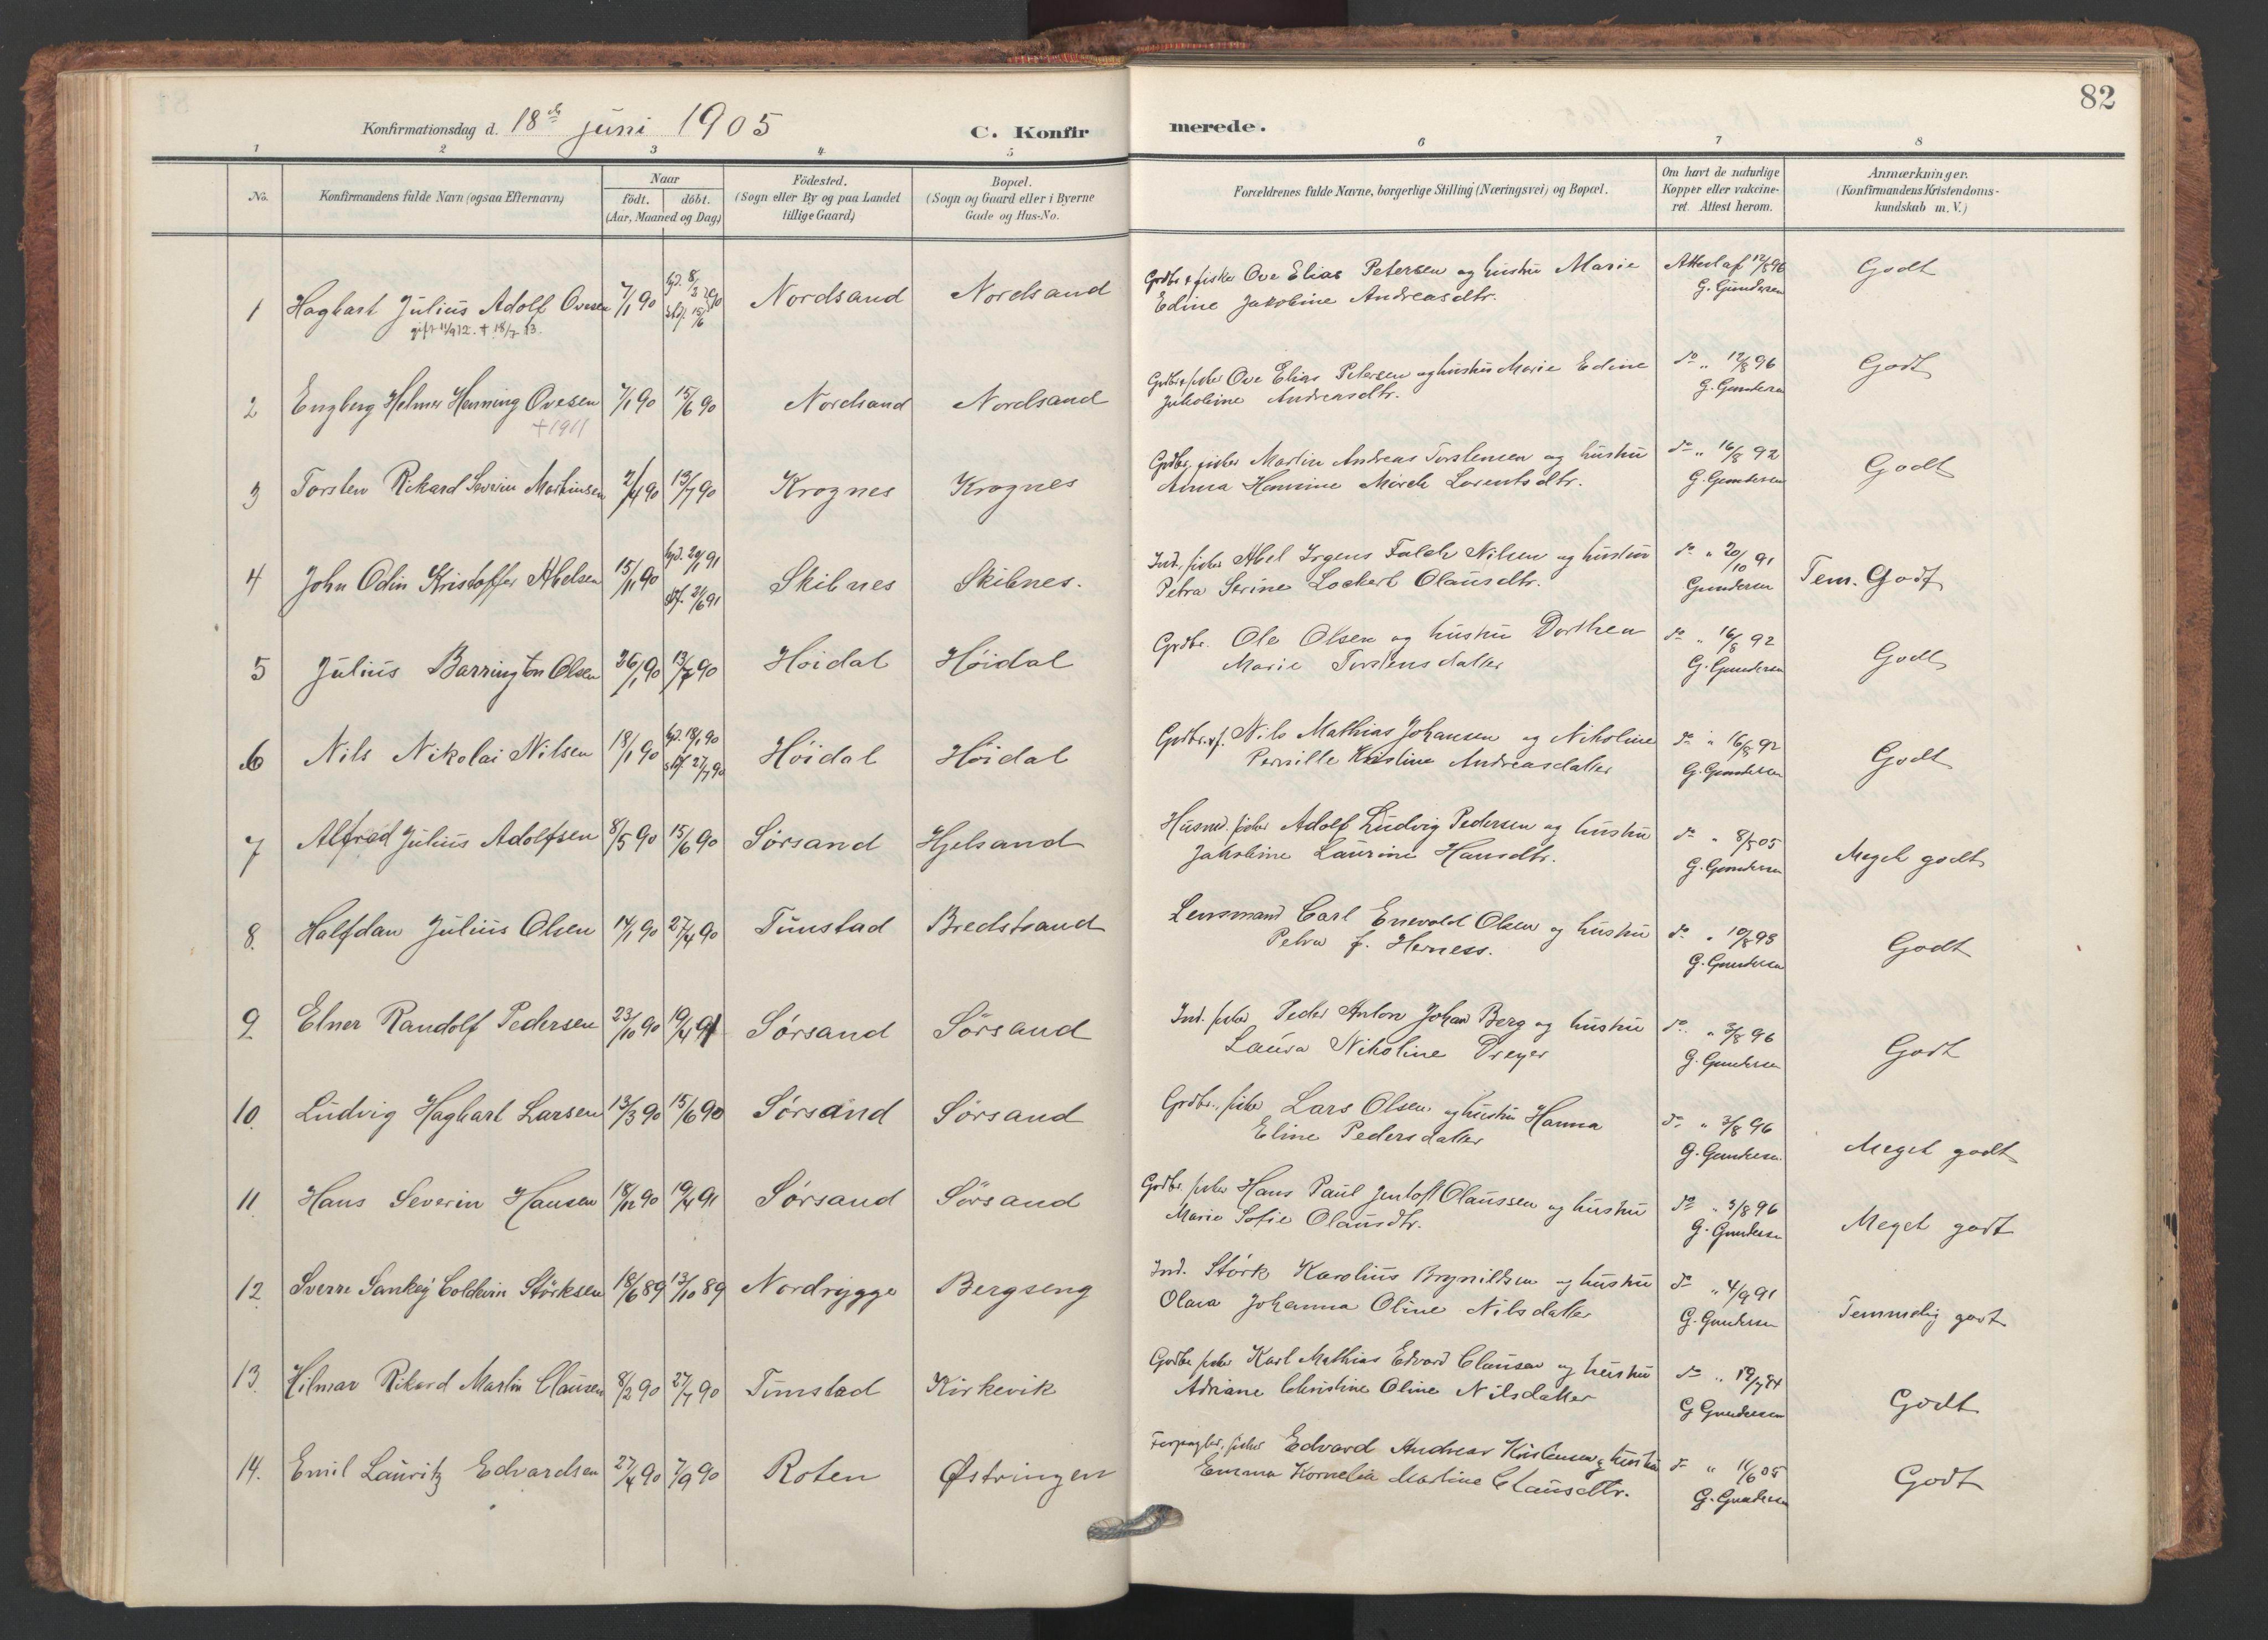 82
Konfirmationsdag d. 18de juni 1905
C. Konfirmerede.
1 2 3 4 5 6 7 8
No.
Konfirmandens fulde Navn (ogsaa Efternavn)
Naar
født. døbt.
(Aar, Maaned og Dag)
Födested.
(Sogn eller By og paa Landet
tillige Gaard)
Bopæl.
(Sogn og Gaard eller i Byerne
Gade og Hus-No.
Forældrenes fulde Navne, borgerlige Stilling (Næringsvei) og Bopæl.
Om havt de naturlige
Kopper eller vakcine-
ret. Attest herom.
Anmærkninger.
(Konfirmandens Kristendoms-
kundskab m. V.)
1 Hagbart Julius Adolf Ovesen 7/1 90 hjd. 8/3 90 stf. 15/6 Nordsand Nordsand Grdbr & fisker Ove Elias Petersen og hustru Marie Attest af 12/8 96 Godt
gift 11/9 12. + 18/7 13.
Edine Jakobine Andreasdtr. G. Gundersen
2 Engberg Helmer Henning Ovesen 7/1 90 15/6 90 Nordsand Nordsand Grdbr & fisker Ove Elias Petersen og hustru Marie Edine do " 12/8 96 Godt
+1911
Jakobine Andreasdtr. G. Gundersen
3 Torsten Rikard Severin Martinsen 2/4 90 13/7 90 Krognes Krognes Grdbr, fisker Martin Andreas Torstensen og hustru do " 16/8 92 Godt
Anna Hannine Mörch Lorentsdtr. G. Gundersen
4 John Odin Kristoffer Abelsen 15/11 90 hjd. 20/1 91 stf. 21/6 91 Skibnes Skibnes. Ind. fisker Abel Irgens Falch Nilsen og hustru do " 20/10 91 Tem. Godt
Petra Serine Lockert Olausdtr. Gundersen
5 Julius Barrington Olsen 26/1 90 13/7 90 Höidal Höidal Grdbr. Ole Olsen og hustru Dorthea do " 16/8 92 Godt
Marie Torstensdatter G. Gundersen
6 Nils Nikolai Nilsen 18/1 90 hjd. 18/1 90 stf. 27/7 90 Höidal Höidal Grdbr. & f. Nils Mathias Johansen og Nikoline do " 16/8 92 Godt
Pernille Kristine Andreasdatter G. Gundersen
7 Alfred Julius Adolfsen 8/5 90 15/6 90 Sörsand Hjelsand Husm. fisker Adolf Ludvig Pedersen og hustru do " 8/5 05 Meget godt
Jakobine Laurine Hansdtr. G. Gundersen
8. Halfdan Julius Olsen 14/1 90 27/4 90 Tunstad Bredstrand Lensmand Carl Enevold Olsen og hustru do " 10/8 93 Godt
Petra f. Herness. G. Gundersen
9 Elner Randolf Pedersen 23/10 90 19/4 91 Sörsand Sörsand Ind. fisker Peder Anton Johan Berg og hustru do " 3/8 96 Godt
Laura Nikoline Dreyer G. Gundersen
10. Ludvig Hagbart Larsen 13/3 90 15/6 90 Sörsand Sörsand Grdbr., fisker Lars Olsen og hustru Hanna do " 3/8 96 Meget godt
Eline Pedersdatter G. Gundersen
11 Hans Severin Hansen 18/12 90 19/4 91 Sörsand Sörsand Grdbr. fisker Hans Paul Jentoft Claussen og hustru do " 3/8 96 Meget godt
Marie Sofie Olausdtr. G. Gundersen
12 Sverre Sankey Coldevin Störksen 18/6 89 13/10 89 Nordrygge Bergseng Ind. Störk Karolius Brynildsen og hustru do " 4/9 91 Temmelig godt
Olava Johanna Oline Nilsdatter G. Gundersen
13. Hilmar Rikard Martin Clausen 8/2 90 27/7 90 Tunstad Kirkevik Grdbr fisker Karl Mathias Edvard Clausen og hustru do " 19/7 94 Godt
Adriane Christine Oline Nilsdatter G Gundersen
14. Emil Lauritz Edvardsen 27/4 90 7/9 90 Roten Østringen Forpagter, fisker Edvard Andreas Kristensen og hustru do " 11/6 05 Godt
Emma Kornelia Martine Clausdtr. G. Gundersen